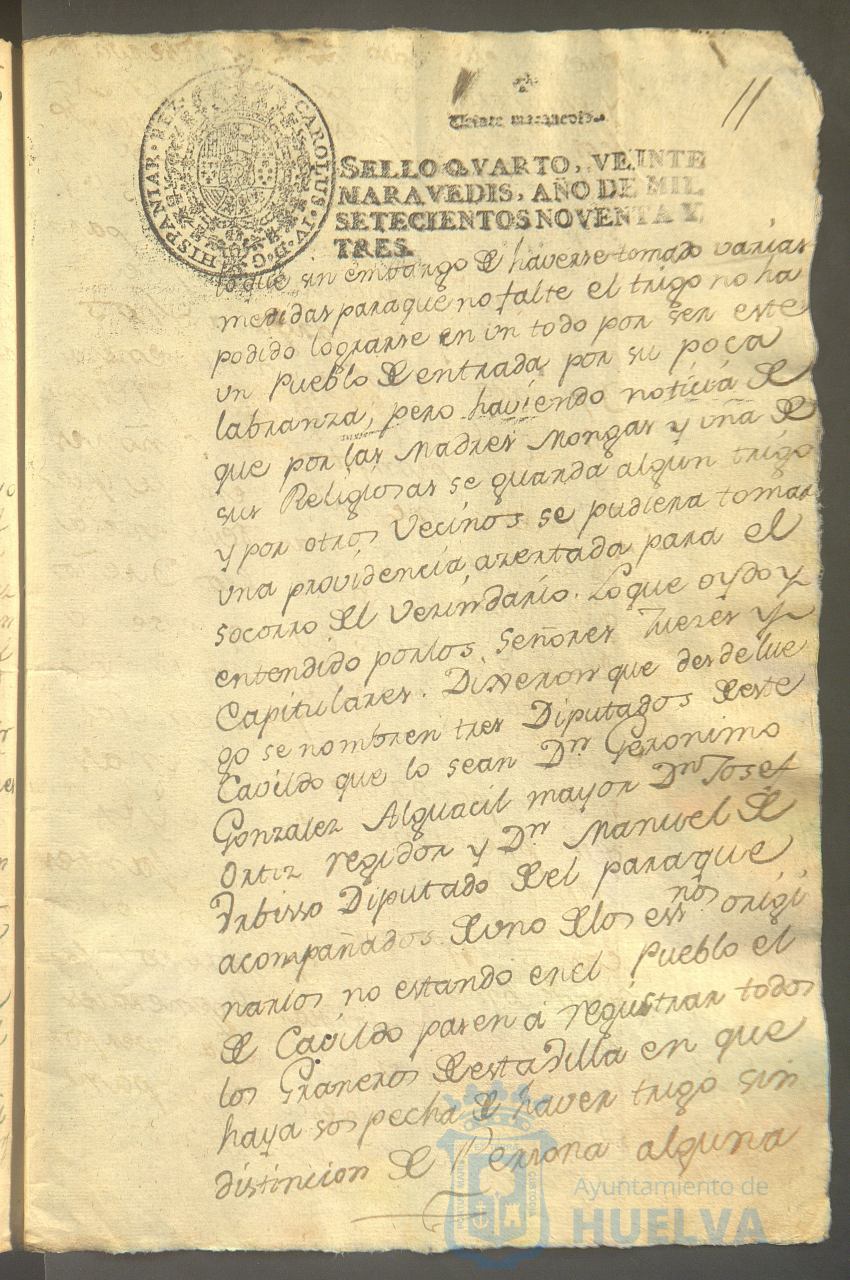 11
Veinte maravedis.
HISPANIAR. REX. CAROLUS. IV. D. G.
SELLO QVARTO, VEINTE
MARAVEDIS, AÑO DE MIL
SETECIENTOS NOVENTA Y
TRES.
lo que sin embargo de haverse tomado varias
medidas para que no falte el trigo no ha
podido lograrse en un todo por ser este
un Pueblo de entrada por su poca
labranza, pero haviendo noticia de
que por las Madres Mongas y una de
sus Religiosas se guarda algun trigo
y por otros Vecinos se pudiera tomar
una providencia azertada para el
socorro del Vecindario. Lo que oydo y
entendido por los Señores Juezes y
Capitulares. Dixeron que desde lue
go se nombren tres Diputados deste
Cavildo que lo sean Dn Geronimo
Gonzalez Alguacil mayor Dn Josef
Ortiz regidor y Dn Manuel de
Diputado del para que
acompañados de uno de los essnos origi
narios no estando en el Pueblo el
de Cavildo pasen a registrar todos
los Graneros desta dilla en que
haya sospecha de haver trigo sin
distincion de Persona alguna
Ayuntamiento de
HUELVA